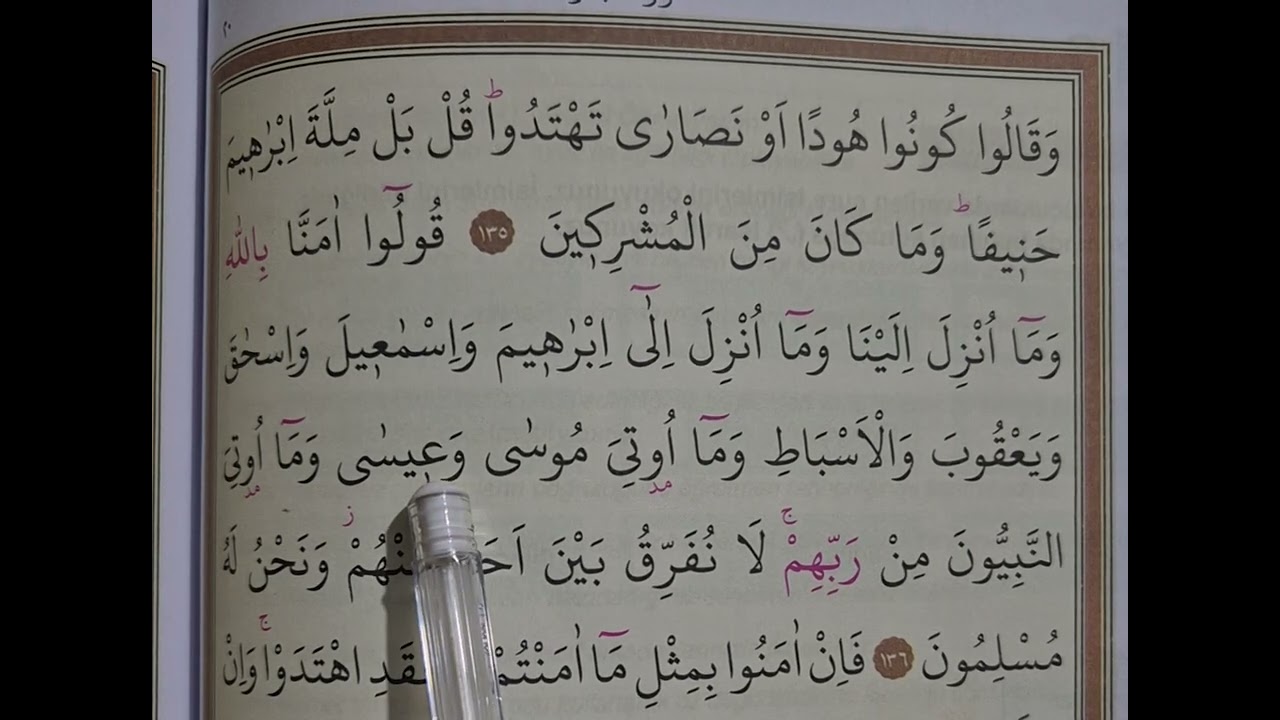 وَقَالُوا كُونُوا هُودًا اَوْ نَصَارٰى تَهْتَدُواۜ قُلْ بَلْ مِلَّةَ اِبْرٰه۪يمَ
حَن۪يفًاۜ وَمَا كَانَ مِنَ الْمُشْرِك۪ينَ ١٣٥ قُولُٓوا اٰمَنَّا بِاللّٰهِ
وَمَٓا اُنْزِلَ اِلَيْنَا وَمَٓا اُنْزِلَ اِلٰٓى اِبْرٰه۪يمَ وَاِسْمٰع۪يلَ وَاِسْحٰقَ
وَيَعْقُوبَ وَالْاَسْبَاطِ وَمَٓا اُو۫تِيَ مُوسٰى وَع۪يسٰى وَمَٓا اُو۫تِيَ
النَّبِيُّونَ مِنْ رَبِّهِمْۚ لَا نُفَرِّقُ بَيْنَ وَنَحْنُ لَهُ
مُسْلِمُونَ ١٣٦ فَاِنْ اٰمَنُوا بِمِثْلِ مَٓا اٰمَنْتُمْ اهْتَدَوْاۚ وَاِنْ